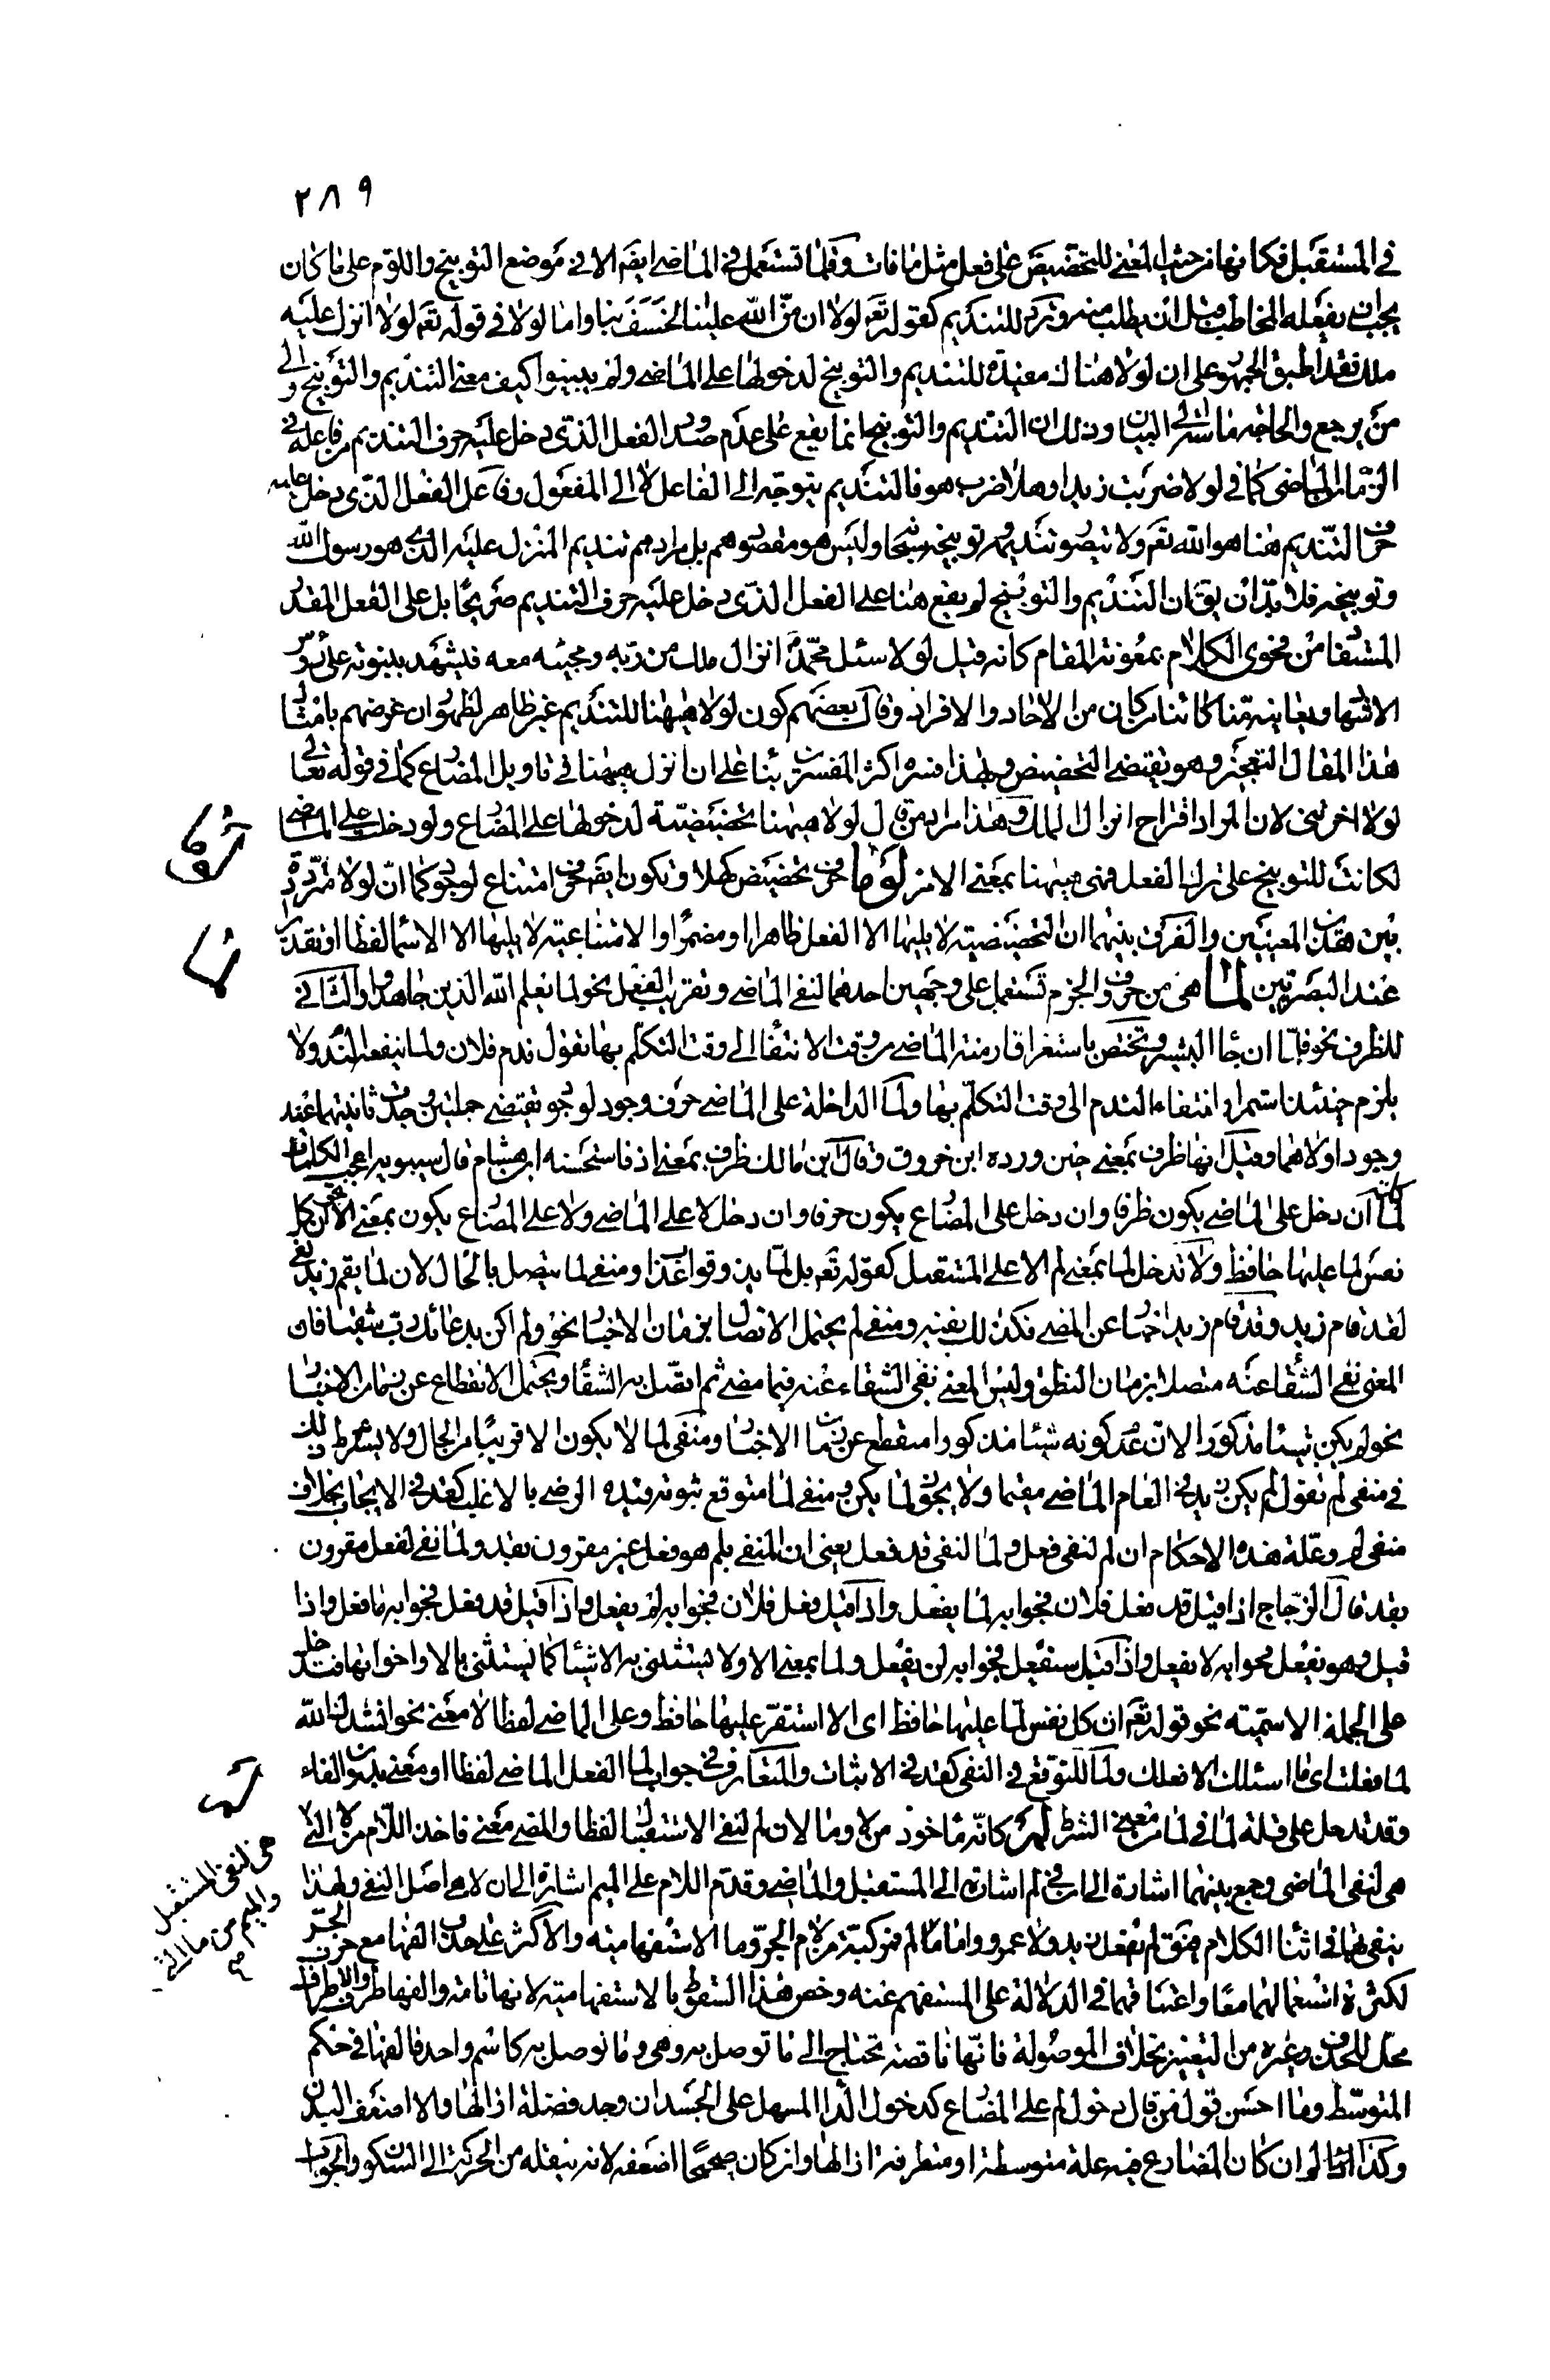 ٢٨٩
في المستقبل فكانها من حيث المعنى للتحضيض على فعل مثل ما فات وقلما تستعمل في الماضي ايضا الا في موضع التوبيخ واللوم على ما كان
يجب ان يفعله المخاطب قبل ان يطلب منه وترد للتنديم كقوله تعالى لولا ان منّ الله علينا لخسف بنا واما لولا في قوله تعالى لولا انزل عليه
ملك فقد اطبق الجمهور على ان لولا هناك مفيدة للتنديم والتوبيخ لدخولها على الماضي ولم يبينوا كيف معنى التنديم والتوبيخ والى
من يرجع والحاجة ماسة الى البيان وذلك ان التنديم والتوبيخ انما يقع على عدم صدور الفعل الذي دخل عليه حرف التنديم من فاعله في
الزمان الماضي كما في لولا ضربت زيدا وهلا ضرب هو فالتنديم يتوجه الى الفاعل لا الى المفعول وفاعل الفعل الذي دخل عليه
حرف التنديم هنا هو الله تعالى ولا يتصور تنديمه وتوبيخه سبحانه وليس هو مقصودهم بل مرادهم تنديم المنزل عليه الذي هو رسول الله
وتوبيخه فلا بد ان يق ان التنديم والتوبيخ لم يقع هنا على الفعل الذي دخل عليه حرف التنديم صريحا بل على الفعل المقدر
المستفاد من فحوى الكلام بمعونة المقام كانه قيل لولا سئل محمد انزال ملك من ربه ومجيئه معه فيشهد بنبوته على رؤس
الاشهاد ويعاينه منا كائنا من كان من الاحاد والافراد وقال بعضهم كون لولا ههنا للتنديم غير ظاهر لظهور ان غرضهم بامثال
هذا المقال التعجيز وهو يقتضي التحضيض ولهذا فسره اكثر المفسرين بناء على ان انزل ههنا في تاويل المضارع كما في قوله تعالى
لولا اخرتني لان المراد اقتراح انزال الملك وهذا مراد من قال لولا ههنا تحضيضية لدخولها على المضارع ولو دخلت على الماضي
لكانت للتوبيخ على ترك الفعل فهي ههنا بمعنى الامر لوما حرف تحضيض كهلا وتكون ايضا حرف امتناع لوجود كما ان لولا مترددة
بين هذين المعنيين والفرق بينهما ان التحضيضية لا يليها الا الفعل ظاهرا او مضمرا والامتناعية لا يليها الا الاسماء لفظا او تقديرا
عند البصريين لما هي من حروف الجزم تستعمل على وجهين احدهما لنفي الماضي وتقريب الفعل نحو لما يعلم الله الذين جاهدوا والثاني
للظرف نحو فلما ان جاء البشير وتختص باستغراق ازمنة الماضي من وقت الانتفاء الى وقت التكلم بها تقول ندم فلان ولما ينفعه الندم ولا
يلزم حينئذ استمرار انتفاء الندم الى وقت التكلم بها ولما الداخلة على الماضي حرف وجود لوجود تقتضي جملتين وجدت ثانيتهما عند
وجود اولاهما وقيل انها ظرف بمعنى حين ورده ابن خروف وقال ابن مالك ظرف بمعنى اذ فاستحسنه ابن هشام قال سيبويه اعجب الكلمات
كلمة لما ان دخل على الماضي يكون ظرفا وان دخل على المضارع يكون حرفا وان دخل لا على الماضي ولا على المضارع يكون بمعنى الا نحو ان كل
نفس لما عليها حافظ ولا تدخل لما بمعنى لم الا على المستقبل كقوله تعالى بل لما يذوقوا عذاب ومنفي لما يتصل بالحال لان لما يقم زيد نفي
لقد قام زيد وقد قام زيد اخبار عن المضي فكذلك نفيه ومنفي لم يحتمل الاتصال بزمان الاخبار نحو ولم اكن بدعائك رب شقيا فان
المعنى نفي الشقاء عنه متصلا بزمان النطق وليس المعنى نفي الشقاء عنه فيما مضى ثم اتصل به الشقاء ويحتمل الانقطاع عن زمان الاخبار
نحو لم يكن شيئا مذكورا لان عدم كونه شيئا مذكورا منقطع عن زمان الاخبار ومنفي لما لا يكون الا قريبا من الحال ولا يشترط ذلك
في منفي لم تقول لم يكن زيد في العام الماضي مقيما ولا يجوز لما يكن ومنفي لما متوقع ثبوته قيده الرضي بالاغلب كقد في الايجاب بخلاف
منفي لم وعلة هذه الاحكام ان لم لنفي فعل ولما لنفي قد فعل يعني ان المنفي بلم هو فعل غير مقرون بقد ولما نفي لفعل مقرون
بقد قال الزجاج اذا قيل قد فعل فلان فجوابه لما يفعل واذا قيل فعل فلان فجوابه لم يفعل واذا قيل لقد فعل فجوابه ما فعل واذا
قيل هو يفعل فجوابه لا يفعل واذا قيل سيفعل فجوابه لن يفعل ولما بمعنى الا ولا يستثنى به الاشياء كما يستثنى بالا واخواتها فتدخل
على الجملة الاسمية نحو قوله تعالى ان كل نفس لما عليها حافظ اي الا استقر عليها حافظ وعلى الماضي لفظا لا معنى نحو انشدك الله
لما فعلت اي ما اسئلك الا فعلك ولما للتوقع في النفي كقد في الاثبات والمتعارف في جواب لما الفعل الماضي لفظا او معنى بدون الفاء
وقد تدخل على قلة لما في لما من معنى الشرط لم كانه ماخوذ من لا وما لان لم لنفي الاستقبال لفظا والمضي معنى فاخذ اللام من لا التي
هي لنفي المستقبل
والميم من ما التي
هي لنفي الماضي وجمع بينهما اشارة الى ان في لم اشارة الى المستقبل والماضي وقدم اللام على الميم اشارة الى ان لا هي اصل النفي ولهذا
ينفى بها في اثناء الكلام فيق لم يفعل زيد ولا عمرو واما لم فمركبة من لام الجر وما الاستفهامية والاكثر على حذف الفها مع حرف الجر
لكثرة استعمالهما معا واعتناقهما في الدلالة على المستفهم عنه وخص هذا السقوط بالاستفهامية لانها تامة والفها طرف والاطراف
محل للحذف وغيره من التغيير بخلاف الموصولة فانها ناقصة تحتاج الى ما توصل به وهي وما توصل به كاسم واحد فالفها في حكم
المتوسط وما احسن قول من قال دخول لم على المضارع كدخول الدواء المسهل على الجسد ان وجد فضلة ازالها والا اضعف البدن
وكذا لم ان كان المضارع فيه علة متوسطة او متطرفة ازالها وان كان صحيحا اضعفه لانه ينقله من الحركة الى السكون
لوما
لما
لم